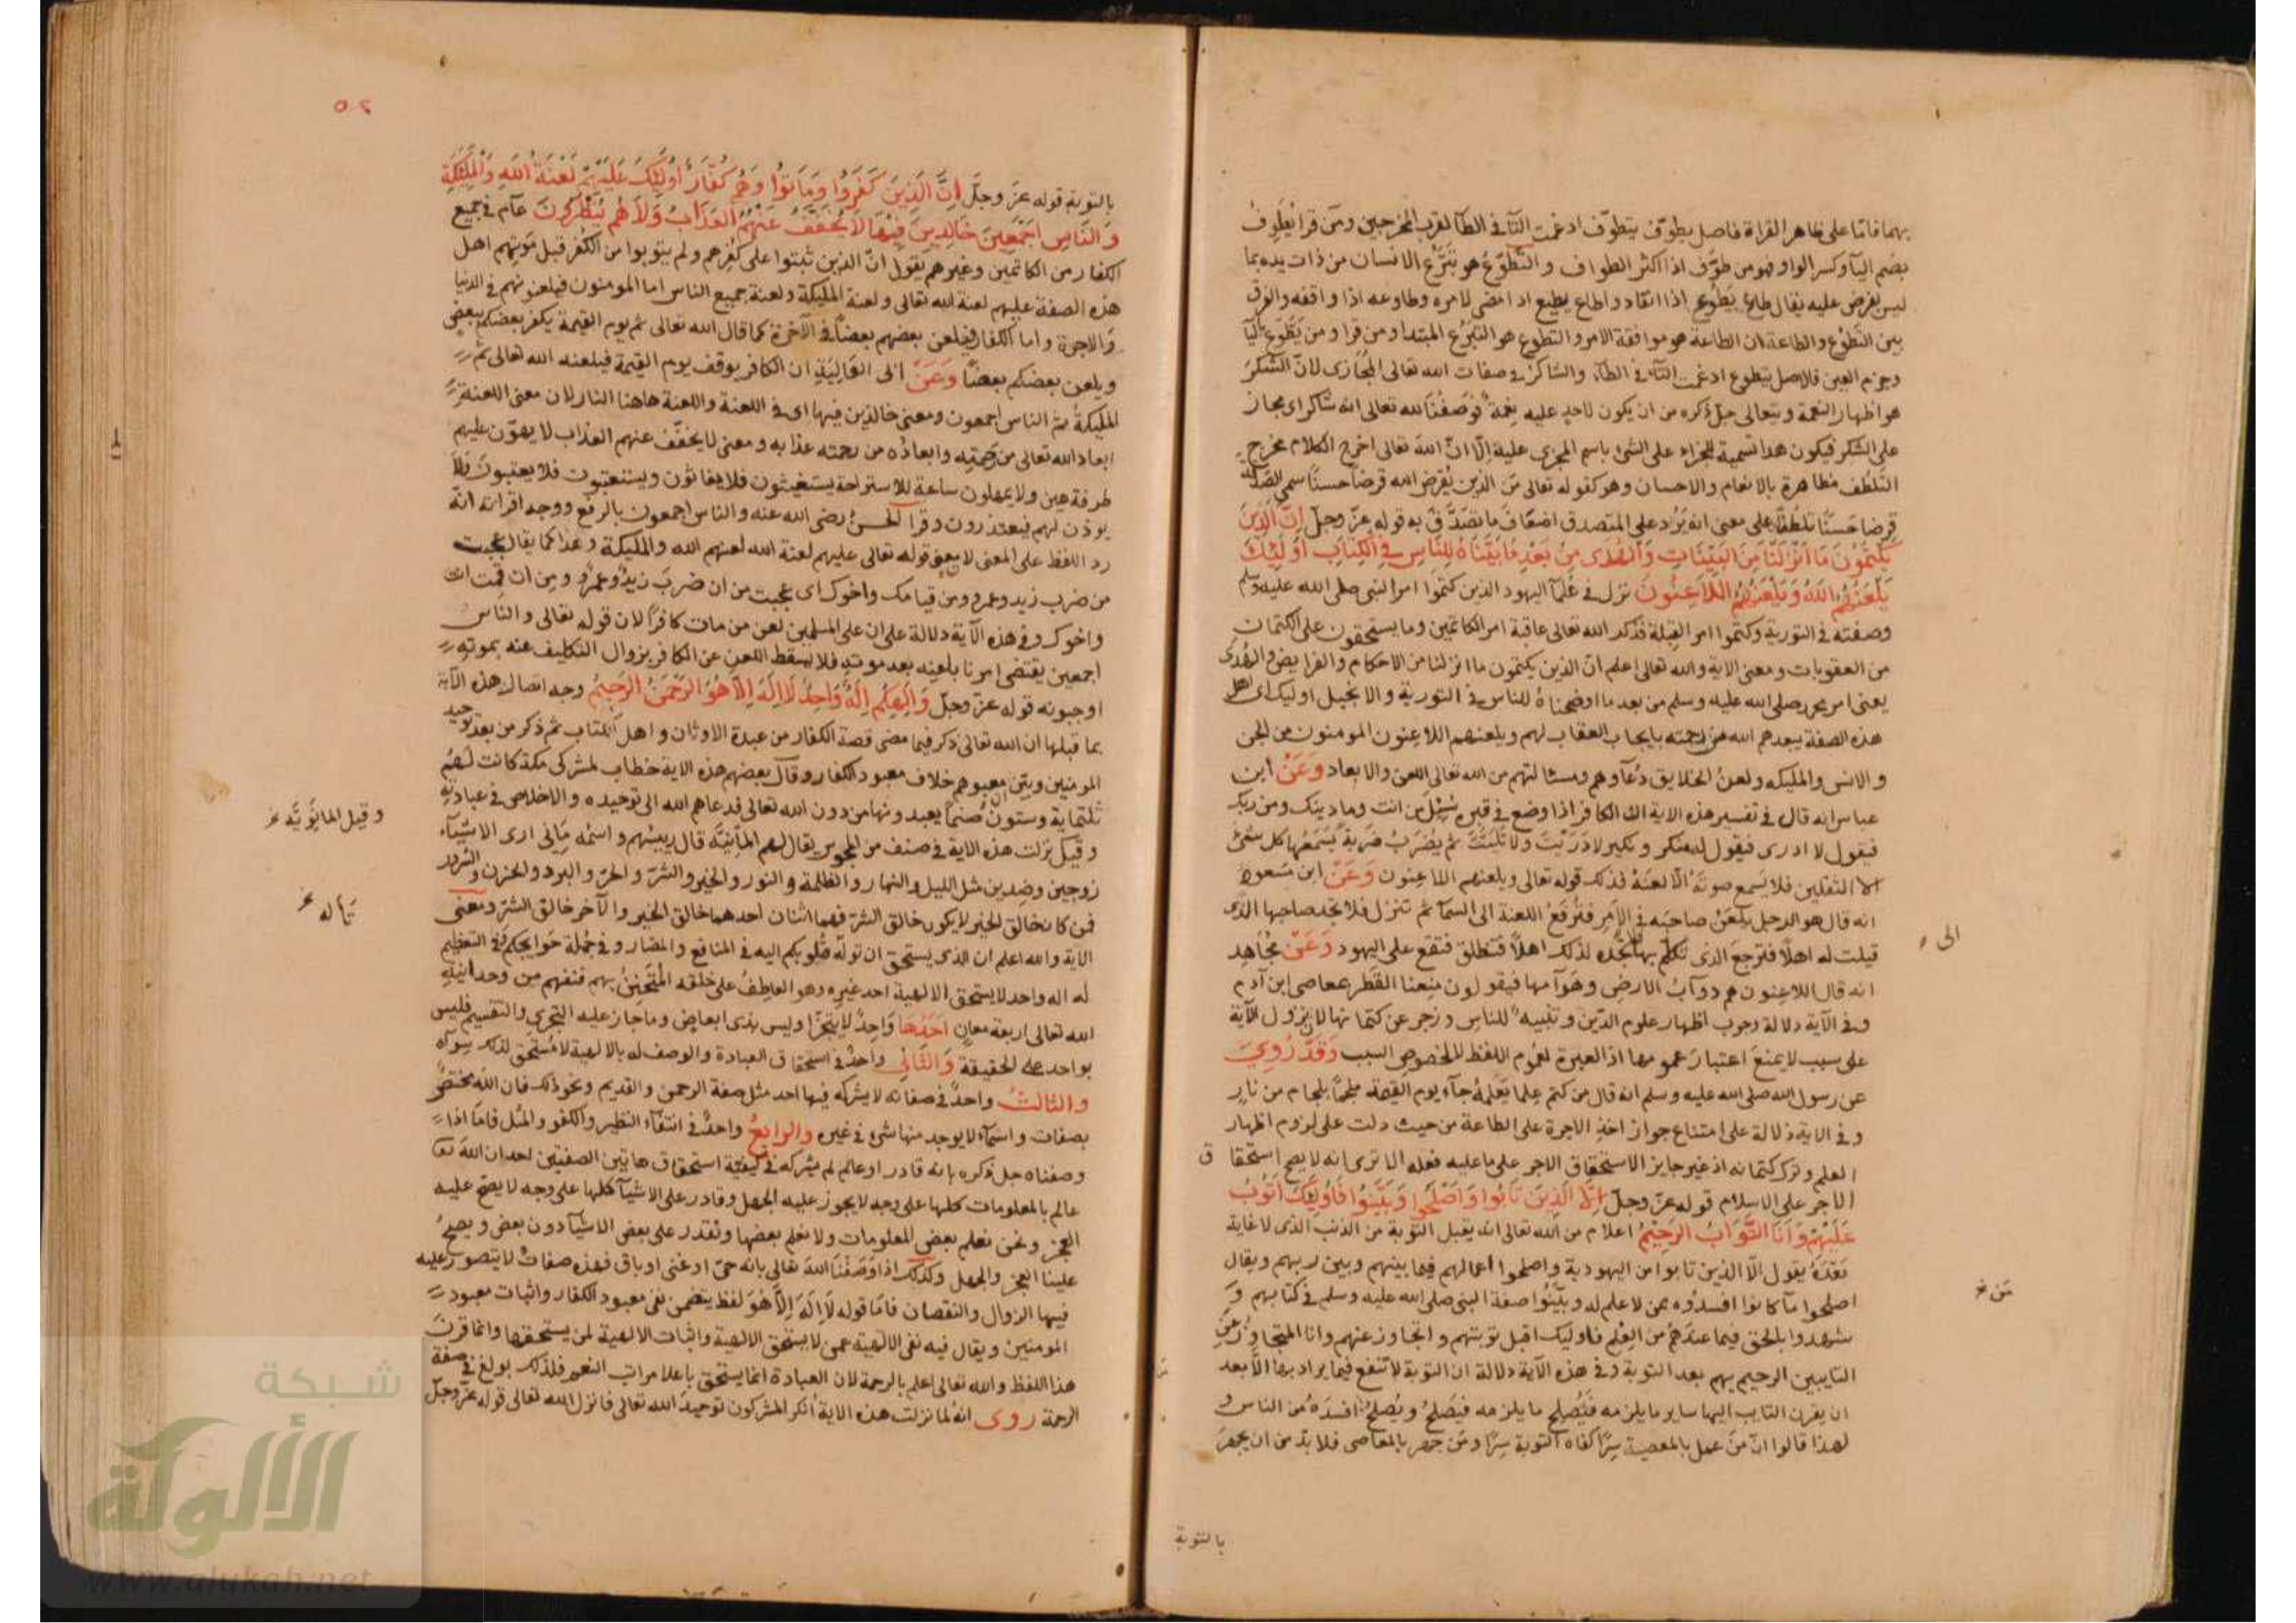 بهما فامّا على ظاهر القراة فاصل يطوّف يتطوّف ادغمت التّآ في الطآ لقرب المخرجين ومن قرا يُطَوِفُ
بضم اليآ وكسر الواو فهو من طوّف اذا اكثر الطواف والتّطوّعُ هو تبرّعُ الانسان من ذات يده بما
ليس يفرض عليه يقال طاع يَطُوع اذا انقاد واطاع يطيع اذا مضى لامره وطاوعه اذا وافقه والفرق
بين التّطوّع والطاعة ان الطاعة هو موافقة الامر والتطوع هو التبرّع المبتدا ومن قرا ومن يَطّوع باليآ
وجزم العين فالاصل يتطوع ادغمت التّآ في الطآ والشاكرُ في صفات الله تعالى المُجازى لانّ الشكرَ
هو اظهار النعمة ويتعالى جلّ ذكره من ان يكون لاحدٍ عليه نِعمة فوَصْفُنا لله تعالى انه شاكر اى مجاز
على الشكر فيكون هذا تسمية للجزاء على الشئ باسم المجزى عليه اِلّا انّ الله تعالى اخرج الكلام مخرج
التلطّف مظاهرة بالانعام والاحسان وهو كقوله تعالى مَن الذى يُقرِض الله قرضاً حسناً سمى الصدقة
قرضا حَسَنًا تلطفًا على معنى انه يَرُد على المتصدق اضعاف ما تصَدَّقَ به قوله عزّ وجلّ اِنَّ الَّذِينَ
يَكْتُمُونَ مَا اَنْزَلْنَا مِنَ البَيِّنَاتِ وَالْهُدٰى مِنْ بَعْدِ مَا بَيَّنَّاهُ لِلنَّاسِ فِي الْكِتَابِ اُولٰئِكَ
يَلْعَنُهُمُ اللهُ وَيَلْعَنُهُمُ اللَّاعِنُونَ نزل في عُلمآ اليهود الذين كتموا امر النبى صلى الله عليه وسلم
وصفته في التورية وكتموا امر القِبلة فذكر الله تعالى عاقبة امر الكاتمين وما يستحقون على الكتمان
من العقوبات ومعنى الاية والله تعالى اعلم انّ الذين يكتمون ما انزلنا من الاحكام والفرايض والهُدى
يعنى امر محمد صلى الله عليه وسلم من بعد ما اوضحناهُ للناس في التورية والانجيل اوليك اى اهل
هذه الصفة يبعدهم الله من رحمته بايجاب العقاب لهم ويلعنهم اللاعِنون المومنون من الجن
والانس والمليكه ولعنُ الخلايق دُعآوهم ومسالتهم من الله تعالى اللعن والابعاد وَعَنْ ابن
عباس انه قال في تفسير هذه الاية ان الكافر اذا وضع في قبره سُئِلَ من انت وما دينك ومن ربك
فيقول لا ادرى فيقول له منكر ونكير لا دَرَيْتَ ولا تَلَيْتَ ثم يُضرَبُ ضَربةً يَسمَعُها كل شئ
الا الثقلين فلا يَسمع صوتَه الّا لعنَهُ فذلك قوله تعالى ويلعنهم اللاعِنون وَعَنْ ابن مَسعود
انه قال هو الرجل يلعَنُ صاحبَه في الامر فتُرفعُ اللعنة الى السمآ ثم تنزل فلا تجد صاحبها الذى
قيلت له اهلاً فترجع الذى تكلّم بها فلا تجده لذلك اهلاً فتنطلق فتقع على اليهود وَعَنْ مُجاهِد
الى
انه قال اللاعِنون هم دوآبُ الارض وهَوَآمها فيقولون مُنِعنا القَطر بمعاصى ابن آدم
وفي الآية دلالة وجوب اظهار علوم الدّين وتنبيهٌ للناس وزجر عن كتمانها لان نزول الآية
على سببٍ لا يمنعَ اعتبارَ عمومها اذ العبرة لعُموم اللفظ لا لخصوص السبب وَقَدْ رُوِيَ
عن رسول الله صلى الله عليه وسلم انه قال من كتم عِلما يَعلَمهُ جآء يوم القيمة ملجمًا بلجام من نارٍ
وفي الاية دلالة على امتناع جواز اخذ الاجرة على الطاعة من حيث دلت على لزوم اظهار
العلم وترك كتمانه اذ غير جايز الاستحقاق الاجر على ما عليه فعله الا ترى انه لا يصح استحقاق
الاجر على الاسلام قوله عزّ وجلّ اِلَّا الَّذِينَ تَابُوا وَاَصْلَحُوا وَبَيَّنُوا فَاُولٰئِكَ اَتُوبُ
عَلَيْهِمْ وَاَنَا التَّوَّابُ الرَّحِيْمُ اعلام من الله تعالى انه يقبل التّوبة من الذنب الذى لا غاية
بَعْدَهُ يقول الّا الذين تابوا من اليهودية واصلحوا اعمالهم فيما بينهم وبين ربهم ويقال
اصلحوا مآ كانوا افسدُوه ممن لا علم له وبيّنُوا صفة النبى صلى الله عليه وسلم في كتابهم و
مَن خ
شهدوا بالحق فيما عندهُم من العِلم فاوليك اقبل توبتهم واتجاوز عنهم وانا المتجاوزُ عَنِ
التايبين الرحيم بهم بعد التوبة وفي هذه الآية دلالة ان التوبة لا تنفع فيما يراد بها الّا بعد
ان يقرن التايب اليها ساير ما يلزمه فيُصلِح ما يلزمه فيَصلحُ ويُصلِحُ افسَدَهُ من الناس و
لهذا قالوا انّ مَنْ عمل بالمعصية سِرًّا كفاه التوبة سِرًّا ومَن جهر بالمعاصى فلا بدّ من ان يجهرَ
بالتوبة
٥٢
بالتوبة قوله عزّ وجلّ اِنَّ الَّذِينَ كَفَرُوا وَمَاتُوا وَهُمْ كُفَّارٌ اُولٰئِكَ عَلَيْهِمْ لَعْنَةُ اللهِ وَالْمَلٰئِكَةِ
وَالنَّاسِ اَجْمَعِينَ خَالِدِينَ فِيْهَا لَا يُخَفَّفُ عَنْهُمُ العَذَابُ وَلَا هُمْ يُنْظَرُونَ عآم في جميع
الكفار من الكاتمين وغيرهم يقول انّ الذين ثبتوا على كُفرِهم ولم يتوبوا من الكُفر قبل مَوتِهم اهل
هذه الصفة عليهم لعنة الله تعالى ولعنة المليكة ولعنة جميع الناس اما المومنون فيلعنونهم في الدنيا
والاخرة واما الكفار فيلعن بعضهم بعضاً في الآخرة كما قال الله تعالى ثم يوم القيمة يكفر بعضكم ببعض
ويلعن بعضكم بعضًا وَعَنْ ابى العَالِيَةِ ان الكافر يوقف يوم القيمة فيلعنه الله تعالى ثم
المليكةُ ثم الناس اجمعون ومعنى خالدين فيها اى في اللعنة واللعنة هاهنا النار لان معنى اللعنة
ابعاد الله تعالى من رَحمتِه وابعادُه من رحمته عذابه ومعنى لا يخفّف عنهم العذاب لا يهوّن عليهم
طرفة عين ولا يمهلون ساعة للاستراحة يستغيثون فلا يغاثون ويستعتبون فلا يعتبونَ وَلَا
يوذن لهم فيعتذرون وقرا الحسنُ رضى الله عنه والناس اجمعون بالرفع ووجه اقرانه انه
رد اللفظ على المعنى لان معنى قوله تعالى عليهم لعنة الله لعنهم الله والمليكة وهذا كما يقال عجبت
من ضرب زيد وعمرو ومن قيامك واخوك اى عجبت من ان ضربَ زيدٌ وعمرٌو ومِن ان قُمتَ انت
واخوك وفي هذه الآية دلالة على ان على المسلمين لعن من مات كافرًا لان قوله تعالى والناس
اجمعين يقتضى امرنا بلعنِه بعد موتهِ فلا يسقط اللعن عن الكافر بزوال التكليف عنه بموتهِ
اوجبونه قوله عزّ وجلّ وَاِلٰهُكُمْ اِلٰهٌ وَاحِدٌ لَا اِلٰهَ اِلَّا هُوَ الرَّحْمٰنُ الرَّحِيمُ وجه اتصال هذه الآية
بما قبلها ان الله تعالى ذكر فيما مضى قصة الكفار من عبدة الاوثان واهل الكتاب ثم ذكر من بعد توحيد
المومنين وبيّن ان معبودهم خلاف معبود الكفار وقال بعضهم هذه الاية خطاب لمشركى مكة كانت لَهُم
ثلثماية وستون صَنمًا يعبدونها من دون الله تعالى فدعاهم الله الى توحيده والاخلاص في عبادتِه
وقيل المانَوّية خ
وقيلَ نزلت هذه الاية في صنف من المجوس يقال لهم المانِيَّة قال رييسُهم واسمُه مَانى ارى الاشيآء
زوجين وضدين مثل الليل والنهار والظلمة والنور والخير والشرّ والحرّ والبرد والحزن والسّرور
تأله خ
فمن كان خالق الخير لا يكون خالق الشرّ فهما اثنان احدهما خالق الخير والآخر خالق الشرّ ومعنى
الاية والله اعلم ان الذى يستحق ان تولّه قُلوبكم اليه في المنافع والمضار وفي جُملة حوايجكم وفي التعظيم
له اله واحد لا يستحق الالهية احد غيره وهو العاطِفُ على خلقه المُتَحَنِّنُ بهم فنفهم من وحدانية
الله تعالى اربعة معانٍ اَحَدُهَا وَاحِدٌ لا يتجزّا وليس بذى ابعاض وما جاز عليه التجزى والتقسيم فليس
بواحد على الحقيقة وَالثَّانِي واحدٌ في استحقاق العبادة والوصف له بالالهية لا مُستحق لذلك سِواه
وَالثَّالِثُ واحدٌ في صفاته لا يشركه فيها احد مثل صفة الرحمن والقديم ونحو ذلك فان الله مختصٌّ
بصفات واسمآء لا يوجد منها شئ في غيره وَالرَّابِعُ واحدٌ في انتفآء النظير والكفو والمثل فامّا اذا
وصفناه جلّ ذكره بانه قادر او عالم لم يشركه في كيفيّة استحقاق هاتين الصفتين احد ان الله تعا
عالم بالمعلومات كلها على وجه لا يجوز عليه الجهل وقادر على الاشيآ كلها على وجه لا يصح عليه
العجز ونحن نعلم بعض المعلومات ولا نعلم بعضها ونقدر على بعض الاشيآ دون بعض ويصحُ
علينا العجز والجهل وكذلك اذا وَصَفْنَا اللهَ تعالى بانه حىّ او غنى او باق فهذه صفاتٌ لا يتصور عليه
فيها الزوال والنقصان فامّا قوله لَا اِلٰهَ اِلَّا هُوَ لفظ يتضمن نفى معبود الكفار واثبات معبود
المومنين ويقال فيه نفى الالهية عمن لا يستحق الالهية واثبات الالهية لمن يستحقها وانما قرنَ
هذا اللفظ والله تعالى اعلم بالرحمة لان العبادة انما يستحق باعلا مراتب النعم فلذلك بولغ في صفة
الرحمة روى انهُ لما نزلت هذه الاية انكر المشركون توحيدَ الله تعالى فانزل الله تعالى قوله عزّ وجلّ
شبكة
الألوكة
www.alukah.net